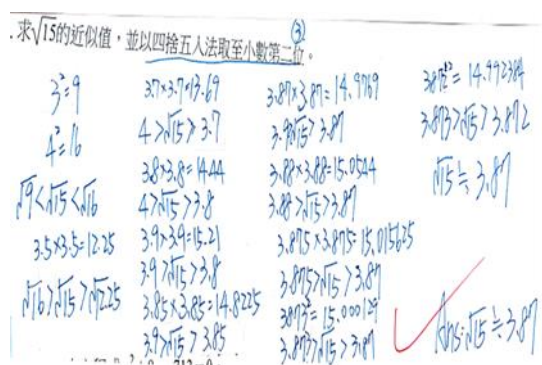 求√15的近似值，並以四捨五入法取至小數第二位。
③
3²=9
4²=16
√9<√15<√16
3.5×3.5=12.25
√16>√15>√12.25
3.7×3.7=13.69
4>√15>3.7
3.8×3.8=14.44
4>√15>3.8
3.9×3.9=15.21
3.9>√15>3.8
3.85×3.85=14.8225
3.9>√15>3.85
3.87×3.87=14.9769
3.9>√15>3.87
3.88×3.88=15.0544
3.88>√15>3.87
3.875×3.875=15.015625
3.875>√15>3.87
3.873²=15.000129
3.873>√15>3.87
3.872²=14.992384
3.873>√15>3.872
√15≒3.87
Ans:√15≒3.87